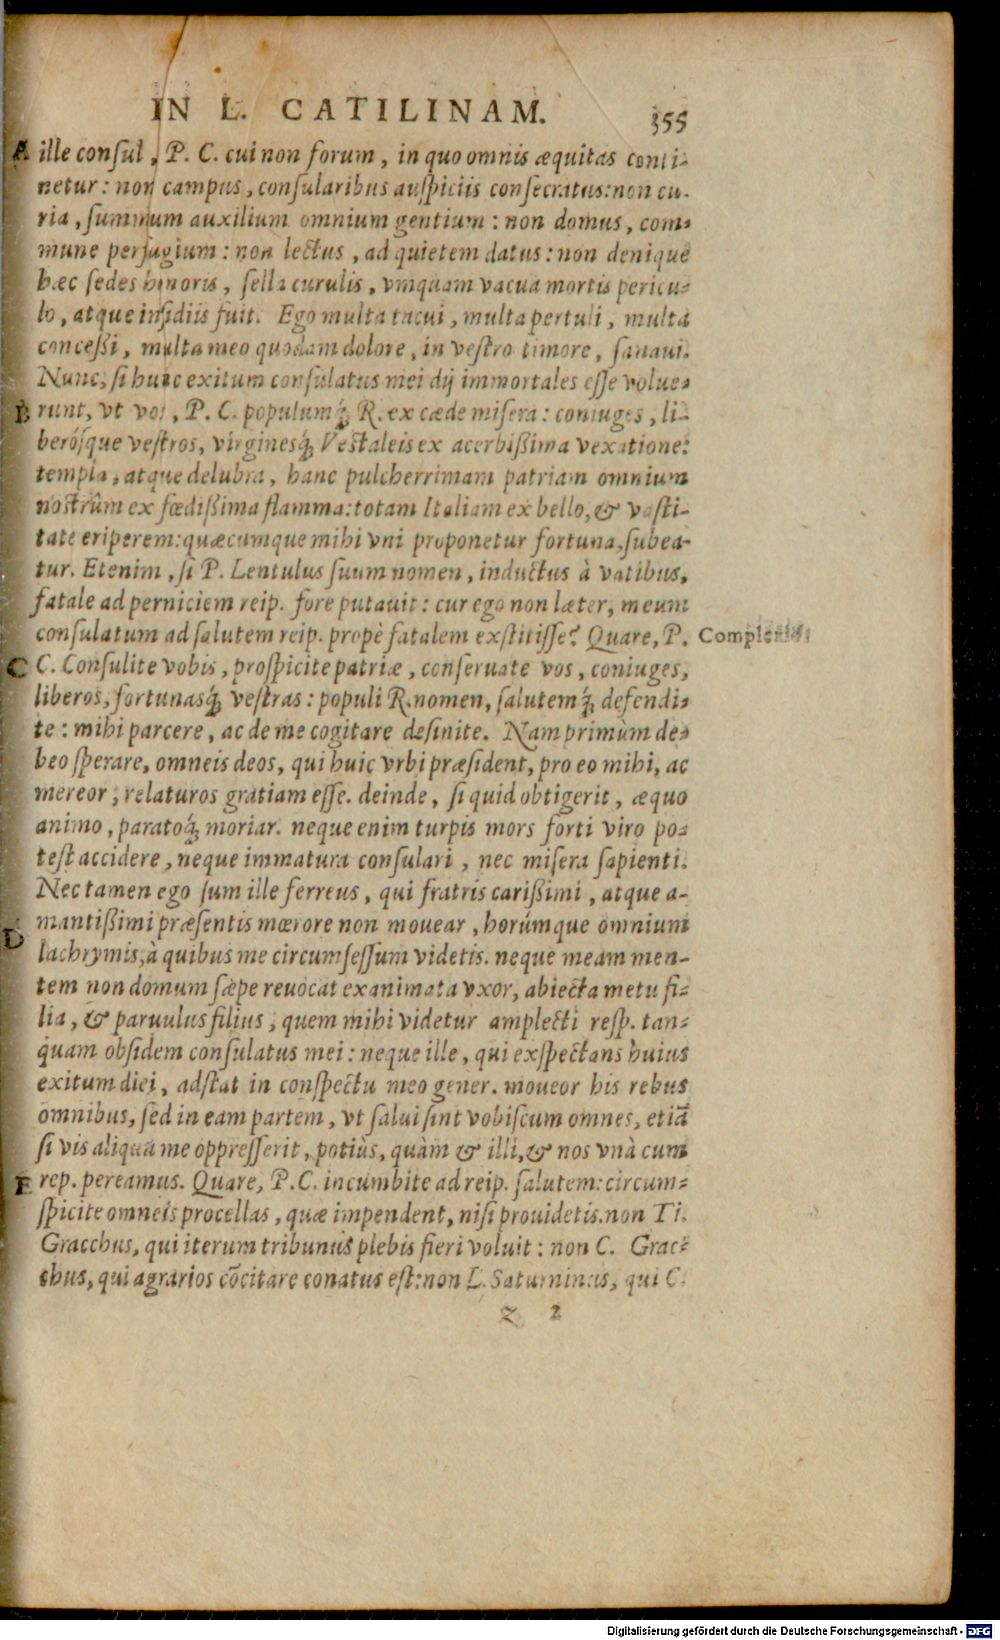 IN L. CATILINAM. 355
A ille conſul, P. C. cui non forum, in quo omnis æquitas conti-
netur: non campus, conſularibus auſpiciis conſecratus: non cu-
ria, ſummum auxilium omnium gentium: non domus, com-
mune perfugium: non lectus, ad quietem datus: non denique
hæc ſedes honoris, ſella curulis, vmquam vacua mortis pericu-
lo, atque inſidiis fuit. Ego multa tacui, multa pertuli, multa
conceßi, multa meo quodam dolore, in veſtro timore, ſanaui.
Nunc, ſi hunc exitum conſulatus mei dij immortales eſſe volue-
B runt, vt vos, P. C. populumq́; R. ex cæde miſera: coniuges, li-
beróſque veſtros, virginesq́; Veſtaleis ex acerbißima vexatione:
templa, atque delubra, hanc pulcherrimam patriam omnium
noſtrûm ex fœdißima flamma: totam Italiam ex bello, & vaſti-
tate eriperem: quæcumque mihi vni proponetur fortuna, ſubea-
tur. Etenim, ſi P. Lentulus ſuum nomen, inductus à vatibus,
fatale ad perniciem reip. fore putauit: cur ego non læter, meum
conſulatum ad ſalutem reip. propè fatalem exſtitiſſe? Quare, P.
C C. Conſulite vobis, proſpicite patriæ, conſeruate vos, coniuges,
liberos, fortunasq́; veſtras: populi R. nomen, ſalutemq́; defendi-
te: mihi parcere, ac de me cogitare deſinite. Nam primùm de-
beo ſperare, omneis deos, qui huic vrbi præſident, pro eo mihi, ac
mereor, relaturos gratiam eſſe. deinde, ſi quid obtigerit, æquo
animo, paratoq́; moriar. neque enim turpis mors forti viro po-
teſt accidere, neque immatura conſulari, nec miſera ſapienti.
Nec tamen ego ſum ille ferreus, qui fratris carißimi, atque a-
mantißimi præſentis mœrore non mouear, horúmque omnium
D lachrymis, à quibus me circumſeſſum videtis. neque meam men-
tem non domum ſæpe reuocat exanimata vxor, abiecta metu fi-
lia, & paruulus filius, quem mihi videtur amplecti reſp. tan-
quam obſidem conſulatus mei: neque ille, qui exſpectans huius
exitum diei, adſtat in conſpectu meo gener. moueor his rebus
omnibus, ſed in eam partem, vt ſalui ſint vobiſcum omnes, etiã
ſi vis aliqua me oppreſſerit, potiùs, quàm & illi, & nos vnà cum
E rep. pereamus. Quare, P. C. incumbite ad reip. ſalutem: circum-
ſpicite omneis procellas, quæ impendent, niſi prouidetis. non Ti.
Gracchus, qui iterum tribunus plebis fieri voluit: non C. Grac-
chus, qui agrarios cõcitare conatus eſt: non L. Saturninus, qui C.
z 2
Digitalisierung gefördert durch die Deutsche Forschungsgemeinschaft - DFG